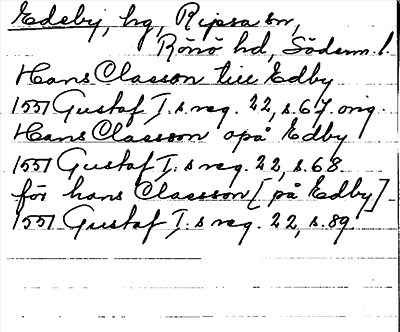 Edeby, hg, Ripsa sn,
Rönö hd, Söderm. l.
Hans Claesson till Edby
1551 Gustaf I.s reg. 22, s. 67. orig.
Hans Claesson opå Edby
1551 Gustaf I.s reg. 22, s. 68.
för hans Claesson [på Edby]
1551 Gustaf I.s reg. 22, s. 89.